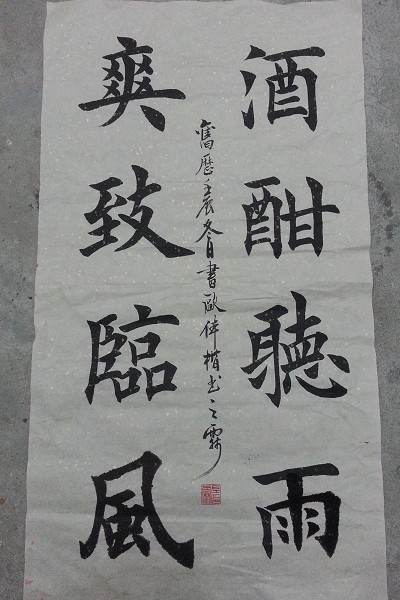 酒酣聽雨
爽致臨風
舊歷壬辰冬日書歐体楷书之霖